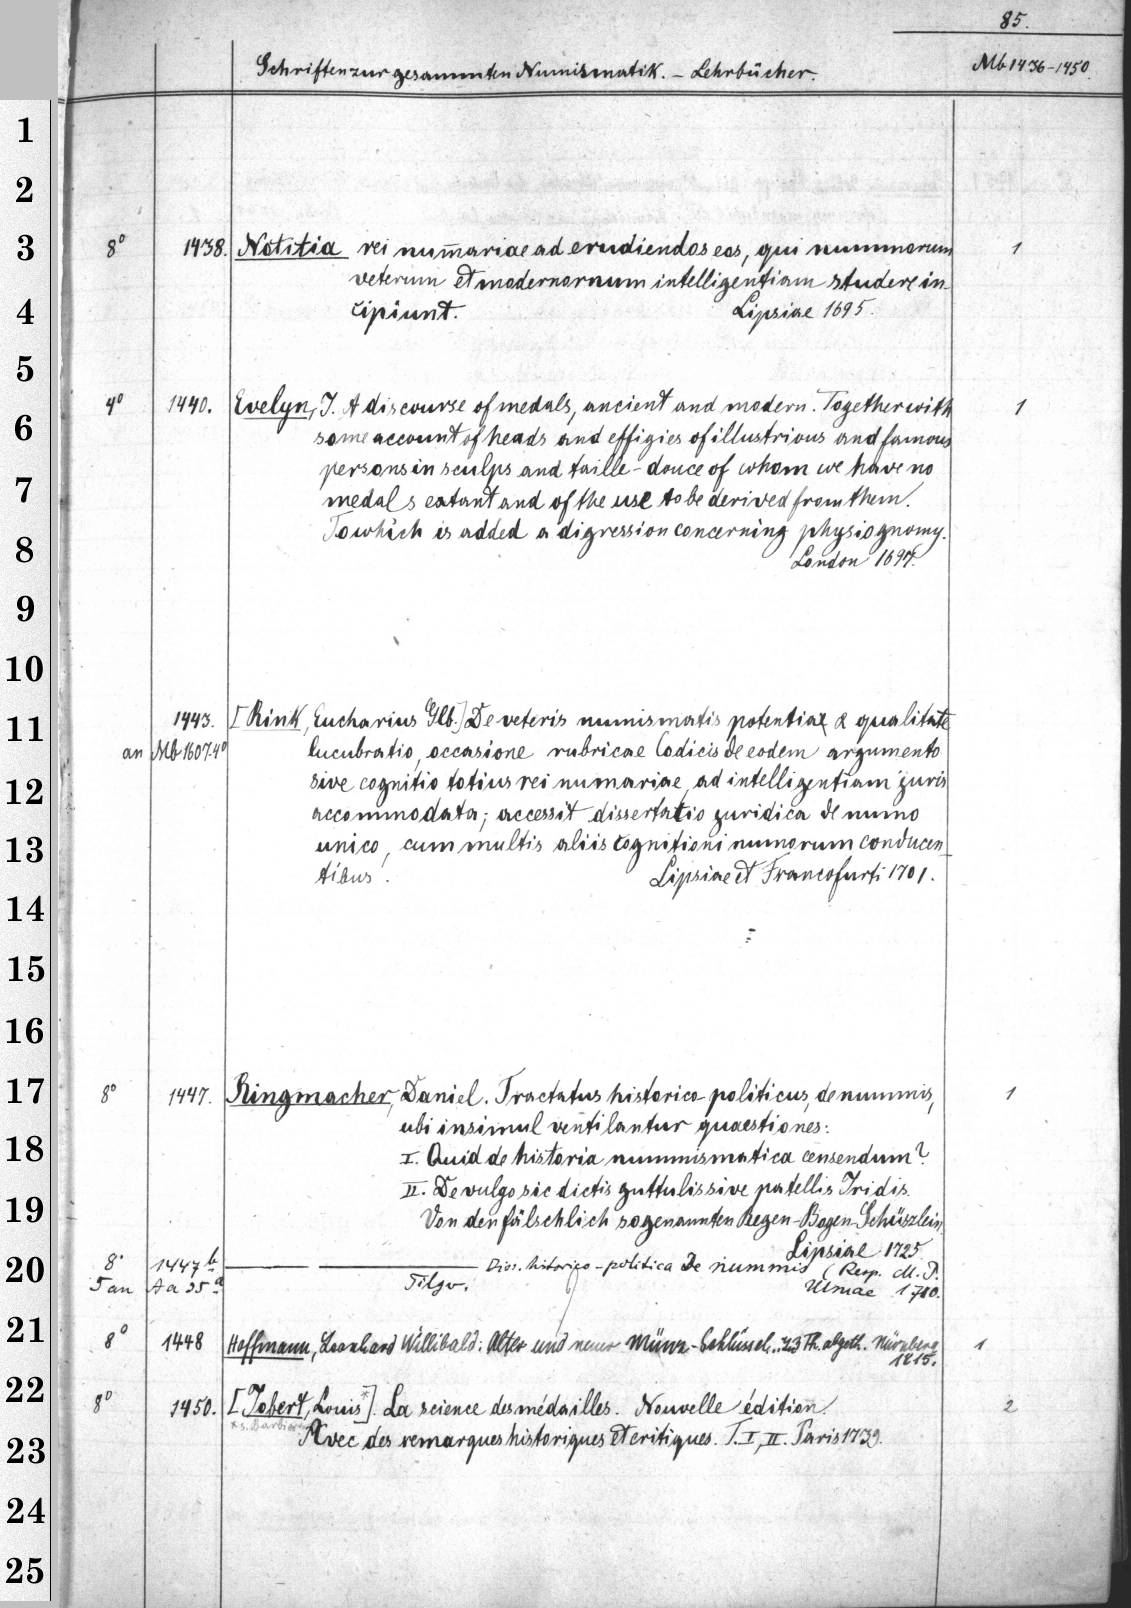 85.
Schriften zur gesammten Numismatik. – Lehrbücher.
Mb 1436–1450
1
2
3
8° 1438. Notitia rei num̅ariae ad erudiendos eos, qui nummorum 1
veterum et modernornum intelligentiam studere in-
4
cipiunt. Lipsiae 1695.
5
4° 1440. Evelyn, J. A discourse of medals, ancient and modern. Together with 1
6
some account of heads and effigies of illustrious and famous
persons in sculps and taille-douce of whom we have no
7
medals extant and of the use to be derived from them.
To which is added a digression concerning physiognomy.
8
London 1697.
9
10
1443. [Rink, Eucharius Glb.] De veteris numismatis potentia & qualitate
11
an Mb 1607.4° lucubratio, occasione rubricae Codicis de eodem argumento
sive cognitio totius rei numariae, ad intelligentiam juris
12
accommodata; accessit dissertatio juridica de numo
unico, cum multis aliis cognitioni numorum conducen-
13
tibus. Lipsiae et Francofurti 1701.
14
15
16
17
8° 1447. Ringmacher, Daniel. Tractatus historico-politicus, de nummis, 1
ubi insimul ventilantur quaestiones:
18
I. Quid de historia nummismatica censendum?
II. De vulgo sic dictis guttulis sive patellis Iridis.
19
Von den fälschlich sogenannten Regen-Bogen-Schüszlein.
Lipsiae 1725.
20
8° 1447 b ——— ——— Diss. historico-politica de nummis (Resp. M. P.
5 an Aa 35 a Tilgv. Ulmae 1710.
21
8° 1448 Hoffmann, Leonhard Willibald: Alter und neuer Münz-Schlüssel. 3 Th. abgeth. Nürnberg 1
1715.
22
8° 1450. [Jobert, Louis*]. La science des médailles. Nouvelle édition. 2
* s. Barbier
Avec des remarques historiques et critiques. T. I, II. Paris 1739.
23
24
25